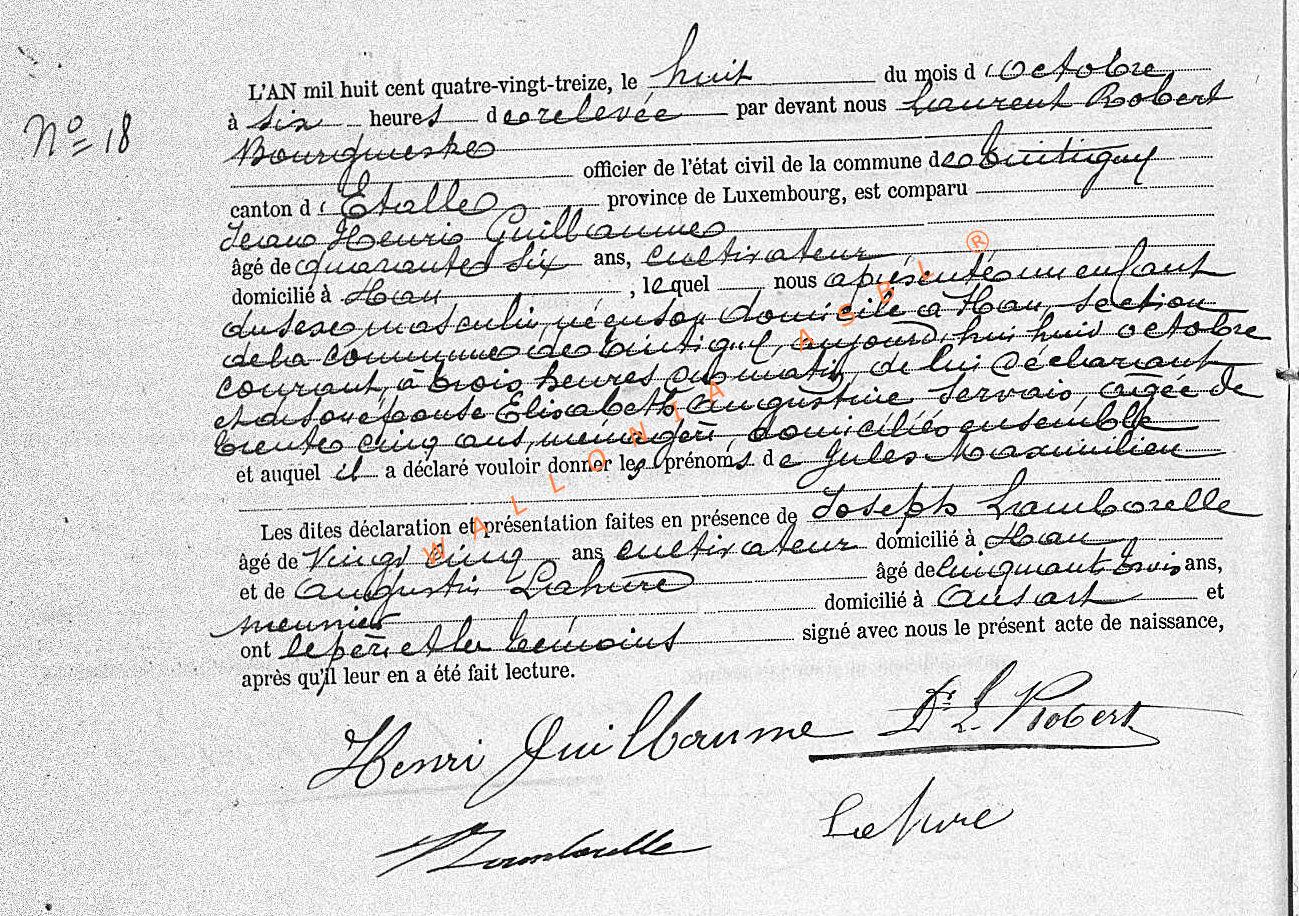 L'AN mil huit cent quatre-vingt-treize, le huit du mois d'Octobre
à six heures de relevée par devant nous Laurent Robert
N° 18
Bourgmestre
officier de l'état civil de la commune de Tintigny
canton d'Etalle province de Luxembourg, est comparu
Jean Henri Guillaume
âgé de quarante six ans, cultivateur
domicilié à Han, lequel nous a présenté un enfant
du sexe masculin, né en son domicile à Han, section
de la commune de Tintigny, aujourd'hui huit octobre
courant, à trois heures du matin, de lui déclarant
et de son épouse Elisabeth Augustine Servais âgée de
trente cinq ans, ménagère, domiciliés ensemble
et auquel il a déclaré vouloir donner les prénoms de Jules Maximilien
Les dites déclaration et présentation faites en présence de Joseph Lamborelle
âgé de vingt cinq ans cultivateur domicilié à Han
et de Augustin Lahure âgé de cinquante trois ans,
meunier domicilié à Ansart et
ont le père et les témoins signé avec nous le présent acte de naissance,
après qu'il leur en a été fait lecture.
Henri Guillaume Dr. L. Robert
Lamborelle Lahure
WALLONIA ASBL ®